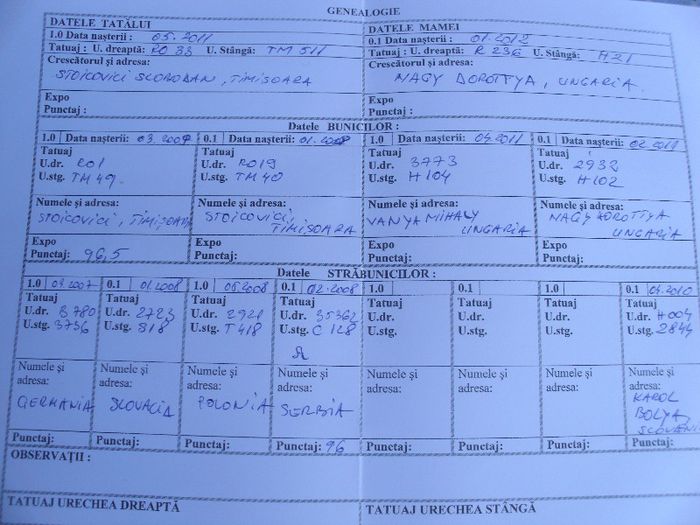 GENEALOGIE
DATELE TATĂLUI
1.0 Data nașterii : 05.2011
Tatuaj : U. dreaptă: RO 33 U. Stângă: TM 511
Crescătorul și adresa:
STOICOVICI SLOBODAN, TIMIȘOARA
Expo
Punctaj :
DATELE MAMEI
0.1 Data nașterii : 01.2012
Tatuaj : U. dreaptă: R 236 U. Stângă: H21
Crescătorul și adresa:
NAGY DOROTTYA, UNGARIA.
Expo
Punctaj :
Datele BUNICILOR :
1.0 Data nașterii: 03.2009
Tatuaj
U.dr. RO1
U.stg. TM 49
Numele și adresa:
STOICOVICI, TIMIȘOARA
Expo
Punctaj: 96,5
0.1 Data nașterii: 01.2008
Tatuaj
U.dr. RO19
U.stg. TM 40
Numele și adresa:
STOICOVICI,
TIMIȘOARA
Expo
Punctaj:
1.0 Data nașterii: 04.2011
Tatuaj
U.dr. 3773
U.stg. H104
Numele și adresa:
VANYA MIHALY
UNGARIA
Expo
Punctaj:
0.1 Data nașterii: 02.2011
Tatuaj
U.dr. 2932
U.stg. H102
Numele și adresa:
NAGY DOROTTYA
UNGARIA
Expo
Punctaj:
Datele STRĂBUNICILOR :
1.0 03.2007
Tatuaj
U.dr. B780
U.stg. 3736
Numele și
adresa:
GERMANIA
Punctaj:
0.1 01.2008
Tatuaj
U.dr. 2723
U.stg. 818
Numele și
adresa:
SLOVACIA
Punctaj:
1.0 05.2008
Tatuaj
U.dr. 2921
U.stg. T418
Numele și
adresa:
POLONIA
Punctaj:
0.1 02.2008
Tatuaj
U.dr. 35362
U.stg. C 128
Numele și
adresa:
SERBIA
Punctaj: 96
1.0
Tatuaj
U.dr.
U.stg.
Numele și
adresa:
Punctaj:
0.1
Tatuaj
U.dr.
U.stg.
Numele și
adresa:
Punctaj:
1.0
Tatuaj
U.dr.
U.stg.
Numele și
adresa:
Punctaj:
0.1 04.2010
Tatuaj
U.dr. H004
U.stg. 2844
Numele și
adresa:
KAROL
BOLYA,
Punctaj:
OBSERVAȚII :
TATUAJ URECHEA DREAPTĂ
TATUAJ URECHEA STÂNGĂ